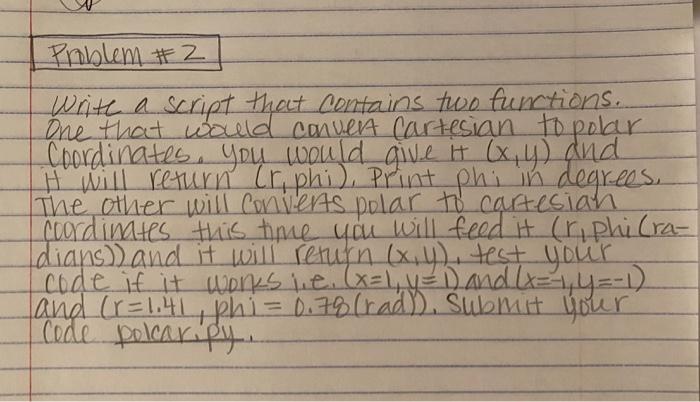 Problem #2
Write a script that contains two functions.
One that would convert Cartesian to polar
Coordinates. you would give it (x,y) and
it will return (r,phi). Print phi in degrees.
The other will converts polar to cartesian
coordinates this time you will feed it (r,phi(ra-
dians)) and it will return (x,y). test your
code if it works i.e. (x=1,y=1) and (x=-1,y=-1)
and (r=1.41, phi=0.78(rad)). Submit your
Code polcar.py.